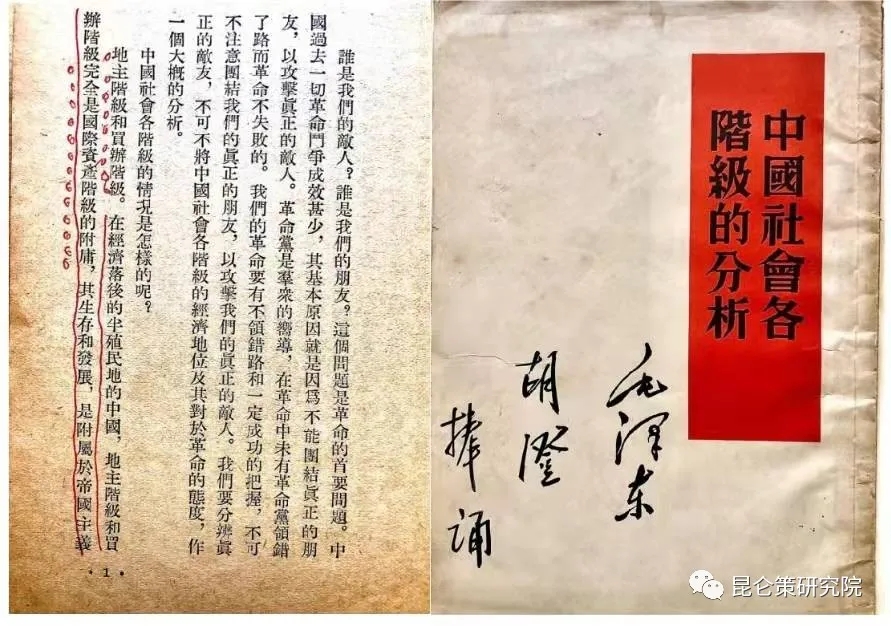 中國社會各
階級的分析
毛澤东
胡澄
捧誦
誰是我們的敵人？誰是我們的朋友？這個問題是革命的首要問題。中
國過去一切革命鬥爭成效甚少，其基本原因就是因爲不能團結眞正的朋
友，以攻擊眞正的敵人。革命黨是羣衆的嚮導，在革命中未有革命黨領錯
了路而革命不失敗的。我們的革命要有不領錯路和一定成功的把握，不可
不注意團結我們的眞正的朋友，以攻擊我們的眞正的敵人。我們要分辨眞
正的敵友，不可不將中國社會各階級的經濟地位及其對於革命的態度，作
一個大概的分析。
中國社會各階級的情況是怎樣的呢？
地主階級和買辦階級。在經濟落後的半殖民地的中國，地主階級和買
辦階級完全是國際資產階級的附庸，其生存和發展，是附屬於帝國主義
·1·
昆仑策研究院